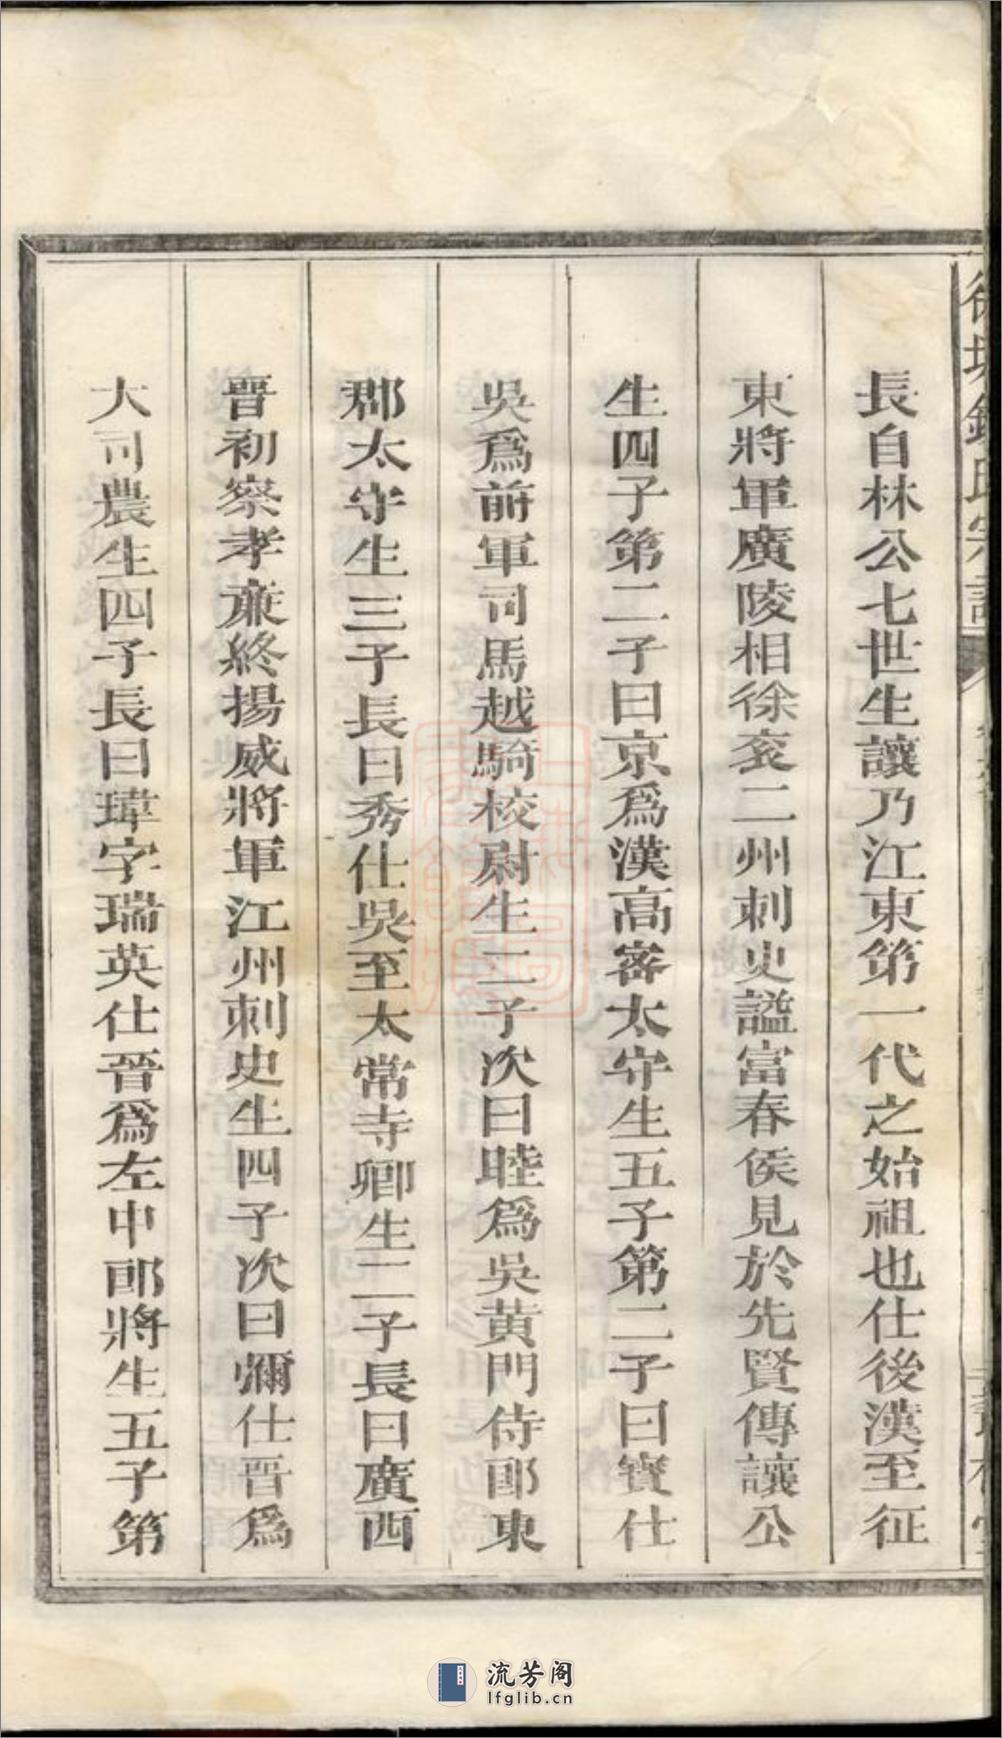 長自林公七世生讓乃江東第一代之始祖也仕後漢至征
東將軍廣陵相徐兖二州刺史謚富春侯見於先賢傳讓公
生四子第二子曰京爲漢高密太守生五子第二子曰寶仕
吳爲前軍司馬越騎校尉生二子次曰睦爲吳黃門侍郎東
郡太守生三子長曰秀仕吳至太常寺卿生二子長曰廣西
晉初察孝亷終揚威將軍江州刺史生四子次曰彌仕晉爲
大司農生四子長曰瑋字瑞英仕晉爲左中郎將生五子第
流芳阁
lfglib.cn